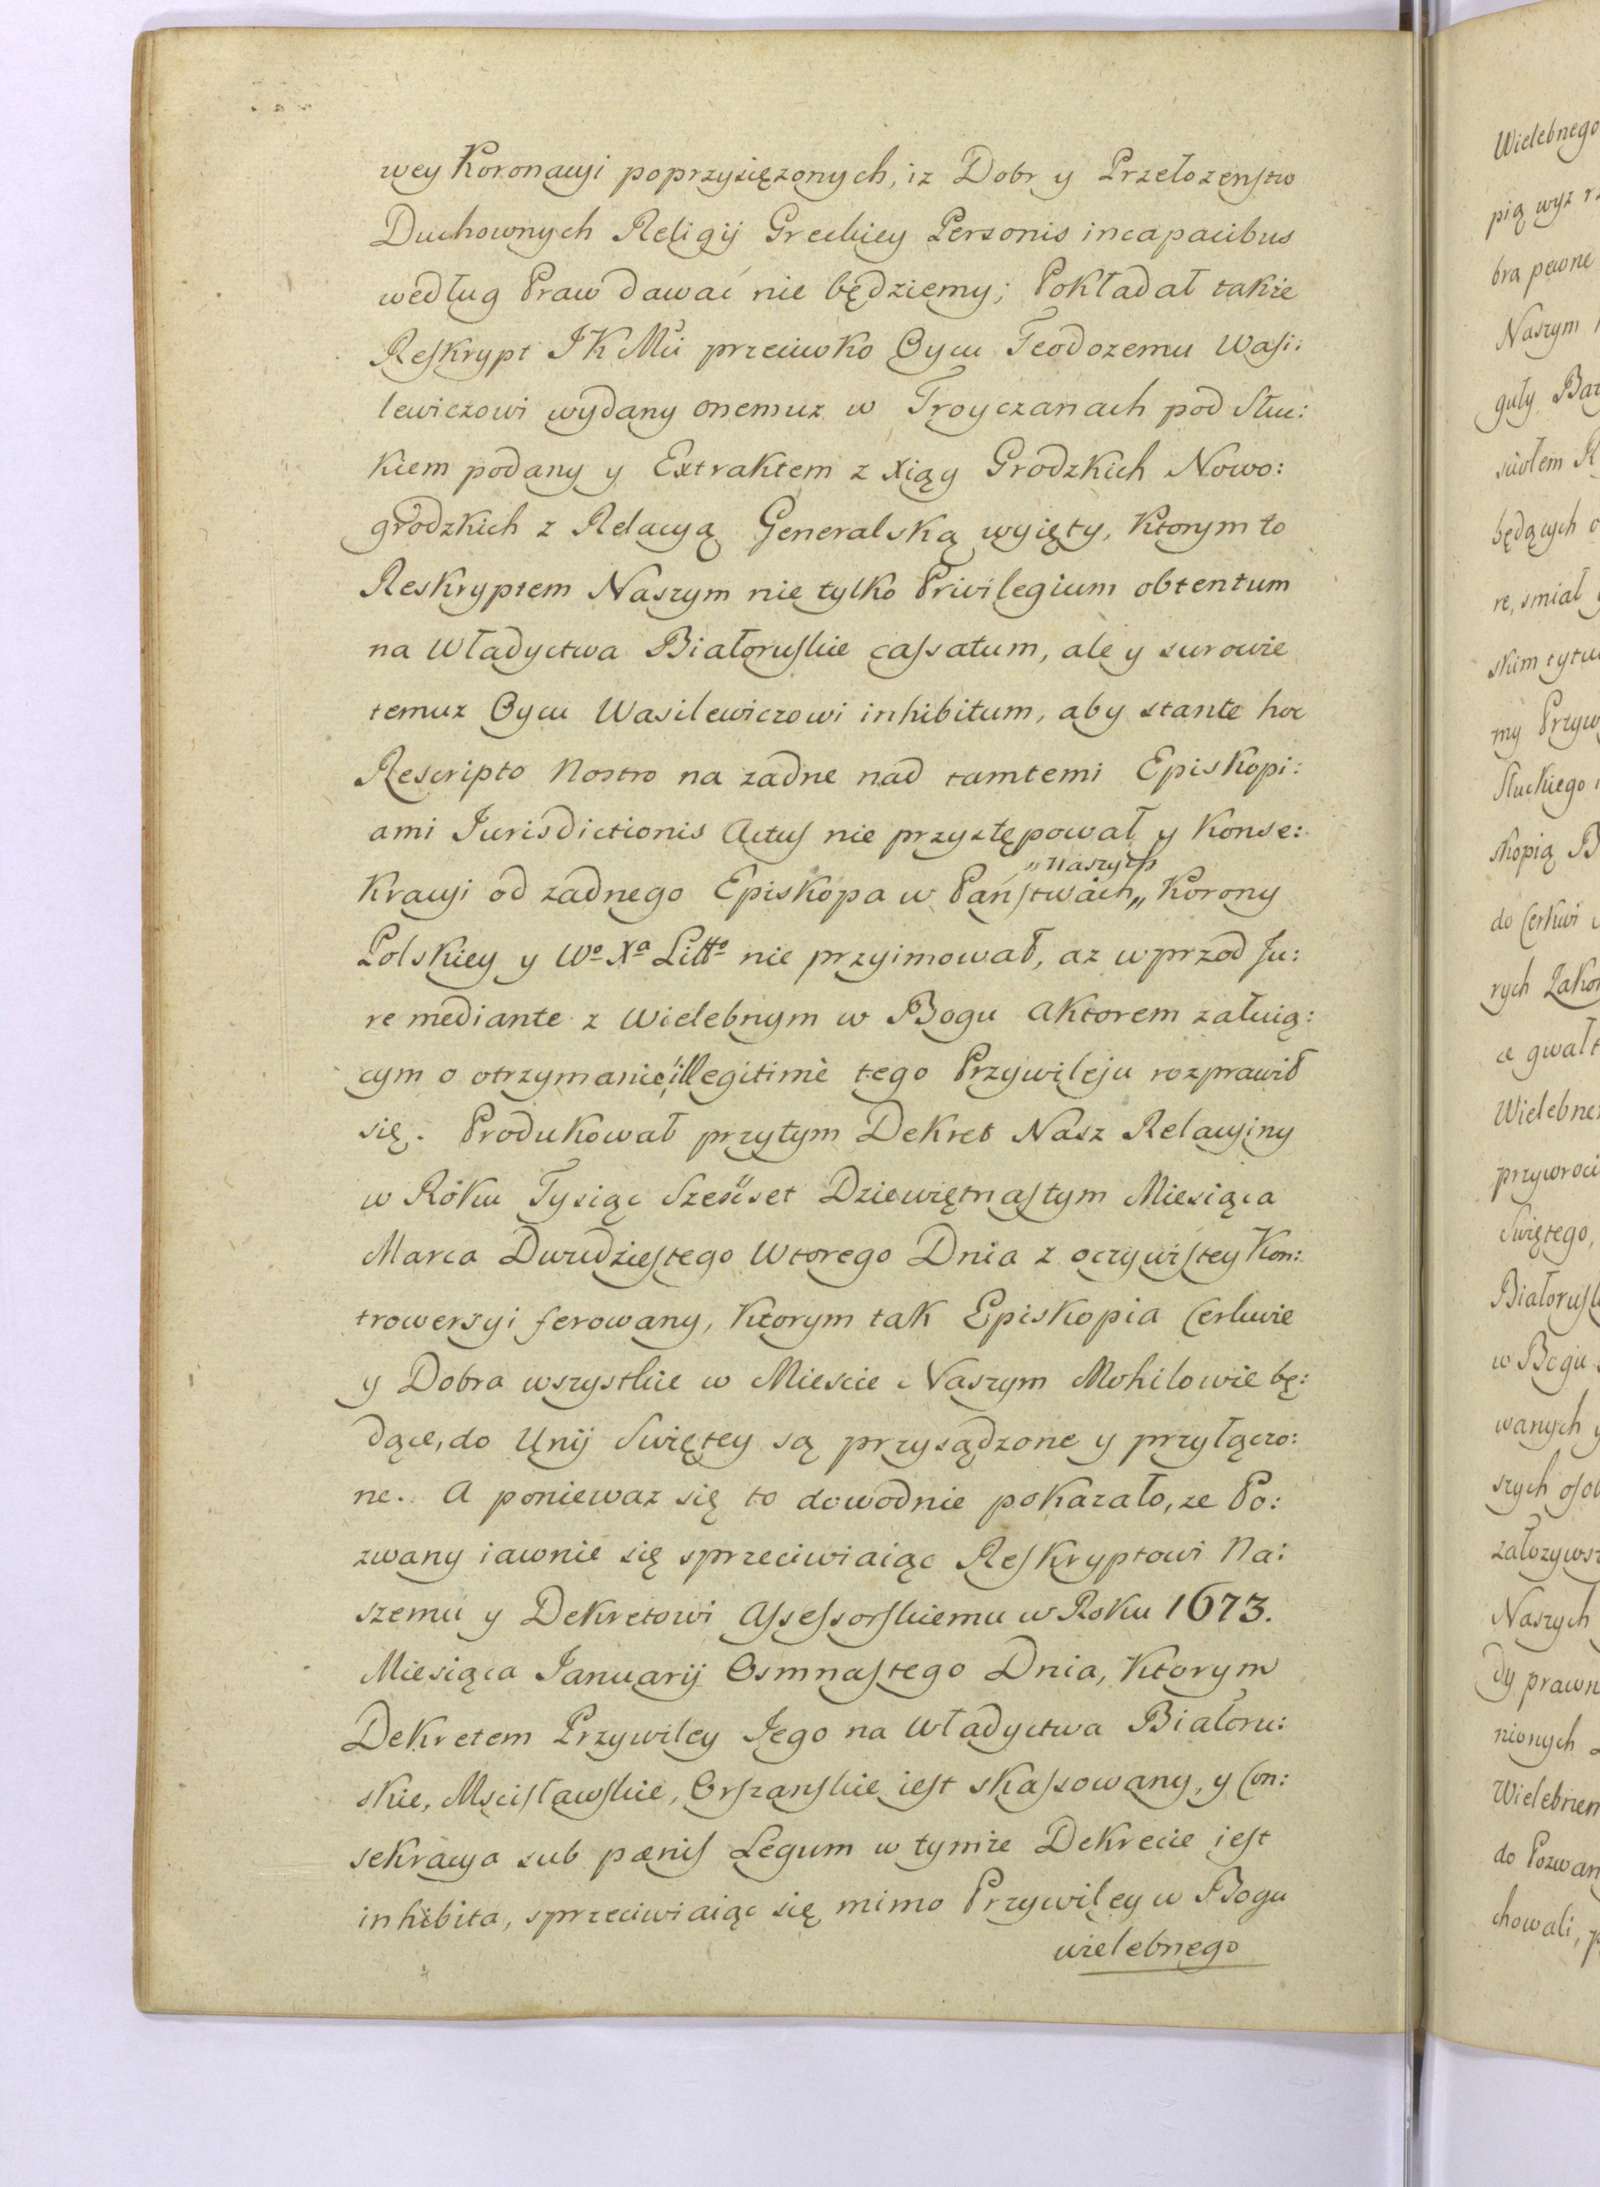 wey Koronacyi poprzysięzonych, iz Dobr y Przełozeństw
Duchownych Religij Greckiey Personis incapacibus
według Praw dawać nie będziemy; Pokładał takze
Reskrypt J K Mci przeciwko Oycu Teodozemu Wasi:
lewiczowi wydany onemuz w Troyczanach pod Słuc:
kiem podany y Extraktem z Xiąg Grodzkich Nowo:
grodzkich z Relacyą Generalską wyięty, ktorym to
Reskryptem Naszym nie tylko Privilegium obtentum
na Władyctwa Białoruskie cassatum, ale y surowie
temuz Oycu Wasilewiczowi inhibitum, aby stante hoc
Rescripto Nostro na zadne nad tamtemi Episkopi:
ami Jurisdictionis Actus nie przystępował y Konse:
kracyi od zadnego Episkopa w Państwach „ Korony
„ Naszych
Polskiey y Wo Xa Litto nie przyimował, az wprzod Ju:
re mediante z Wielebnym w Bogu Aktorem załuią:
cym o otrzymanie illegitimè tego Przywileju rozprawił
się. Produkował przytym Dekret Nasz Relacyiny
w Roku Tysiąc Sześćset Dziewiętnastym Miesiąca
Marca Dwudziestego Wtorego Dnia z oczywistey Kon:
trowersyi ferowany, ktorym tak Episkopia Cerkwie
y Dobra wszystkie w Miescie Naszym Mohilowie bę:
dące, do Unij Swiętey są przysądzone y przyłączo:
ne. A poniewaz się to dowodnie pokazało, ze Po:
zwany iawnie się sprzeciwiaiąc Reskryptowi Na:
szemu y Dekretowi Assessorskiemu w Roku 1673.
Miesiąca Januarij Osmnastego Dnia, ktorym
Dekretem Przywiley Jego na Władyctwa Białoru:
skie, Mscisławskie, Orszanskie iest skassowany, y Con:
sekracya sub pænis Legum w tymze Dekrecie iest
inhibita, sprzeciwiaiąc się mimo Przywiley w Bogu
wielebnego
Wielebnego
pią wyz
bra pewne
Naszym
guły Baz
będących
re, smiał
skim tytu
my Przyw
Słuckiego
skopią B
do Cerkwi
rych Zakon
gwałt
Wielebne
przywroci
Swiętego,
Białorusk
w Bogu
wanych y
szych osob
załozyws
Naszych
dy prawn
nionych
Wielebnem
do Pozwan
chowali,